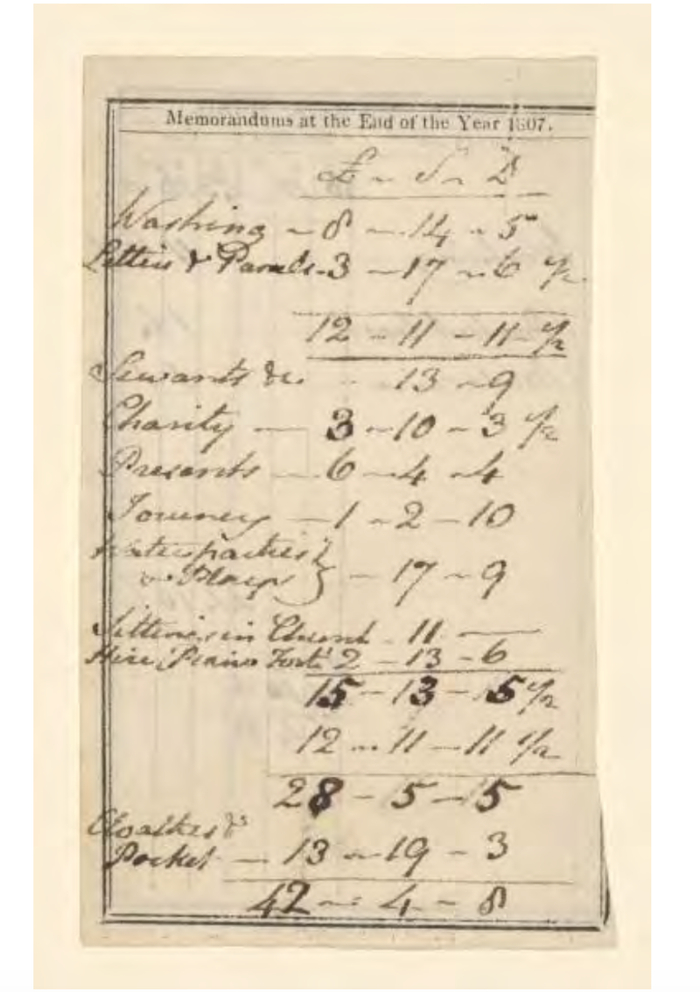 Memorandums at the End of the Year 1807.
£ ~ S ~ D
Washing - 8 - 14 - 5
Letters & Parcels - 3 - 17 - 6 1/2
12 - 11 - 11 1/2
Servants &c. - 13 - 9
Charity - 3 - 10 - 3 1/2
Presents - 6 - 4 - 4
Journey - 1 - 2 - 10
Waterparties }
& Plays } - 17 - 9
Sittings in Church - 11 -
Hire Piano Forte 2 - 13 - 6
15 - 13 - 5 1/2
12 - 11 - 11 1/2
28 - 5 - 5
Cloathes &
Pocket - 13 - 19 - 3
42 - 4 - 8